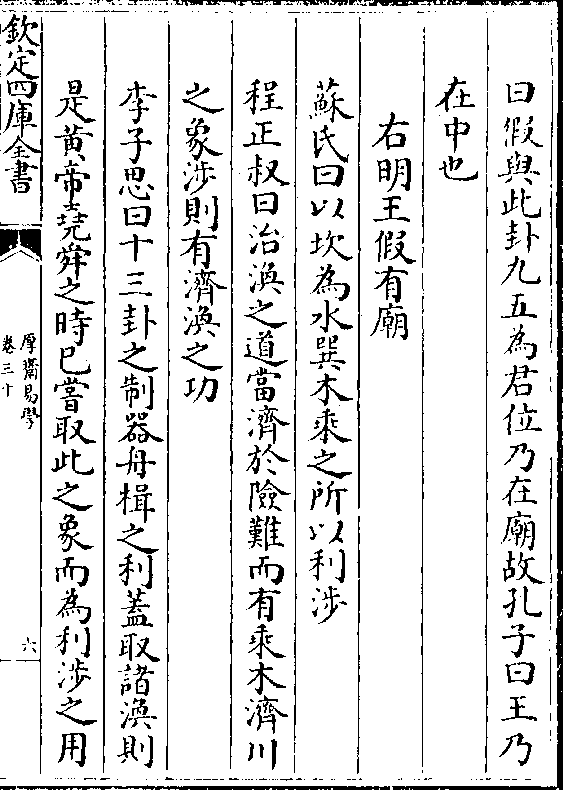 曰假與此卦九五為君位乃在廟故孔子曰王乃
在中也
右明王假有廟
蘇氏曰以坎為水巽木乘之所以利涉
程正叔曰治渙之道當濟於險難而有乘木濟川
之象涉則有濟渙之功
李子思曰十三卦之制器舟楫之利蓋取諸渙則
是黄帝堯舜之時已嘗取此之象而為利涉之用
欽定四庫全書
厚齋易學
卷三十
六